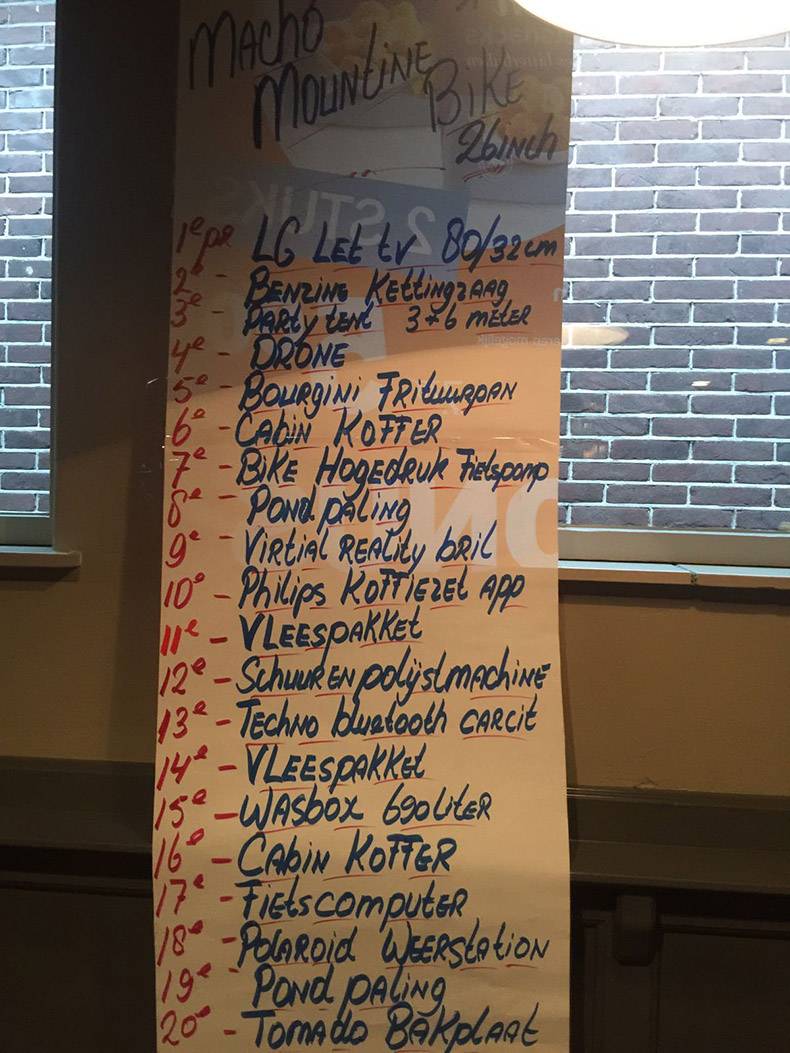 Macho
Mountine
Bike
26inch
2 STUKS
1e pr LG Let tv 80/32cm
2e - Benzine Kettingzaag
3e - Party tent 3+6 meter
4e - Drone
5e - Bourgini Frituurpan
6e - Cabin Koffer
7e - Bike Hogedruk Fietspomp
8e Pond paling
9e - Virtial Reality bril
10e - Philips Koffiezet app
11e - Vleespakket
12e - Schuur en polijstmachine
13e - Techno bluetooth carcit
14e - Vleespakket
15e - Wasbox 690 liter
16e - Cabin Koffer
17e - Fietscomputer
18e - Polaroid Weerstation
19e - Pond paling
20e - Tornado Bakplaat